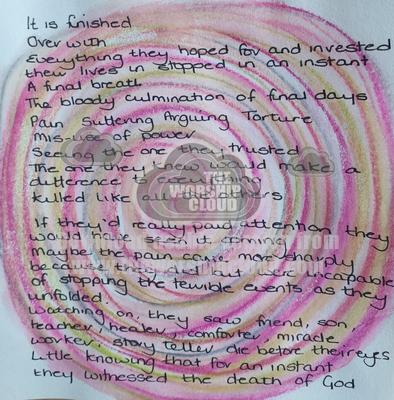 It is finished
Over with
Everything they hoped for and invested
their lives in stopped in an instant
A final breath
The bloody culmination of final days
Pain Suffering Arguing Torture
Mis-use of power
Seeing the one they trusted
The one they knew would make a
difference to everything
killed like all the others
THE WORSHIP CLOUD
If they'd really paid attention they
would have seen it coming
Maybe the pain came more sharply
because they did but were incapable
of stopping the terrible events as they
unfolded.
Watching on, they saw friend, son,
teacher, healer, comforter, miracle
worker, story teller die before their eyes
Little knowing that for an instant
they witnessed the death of God